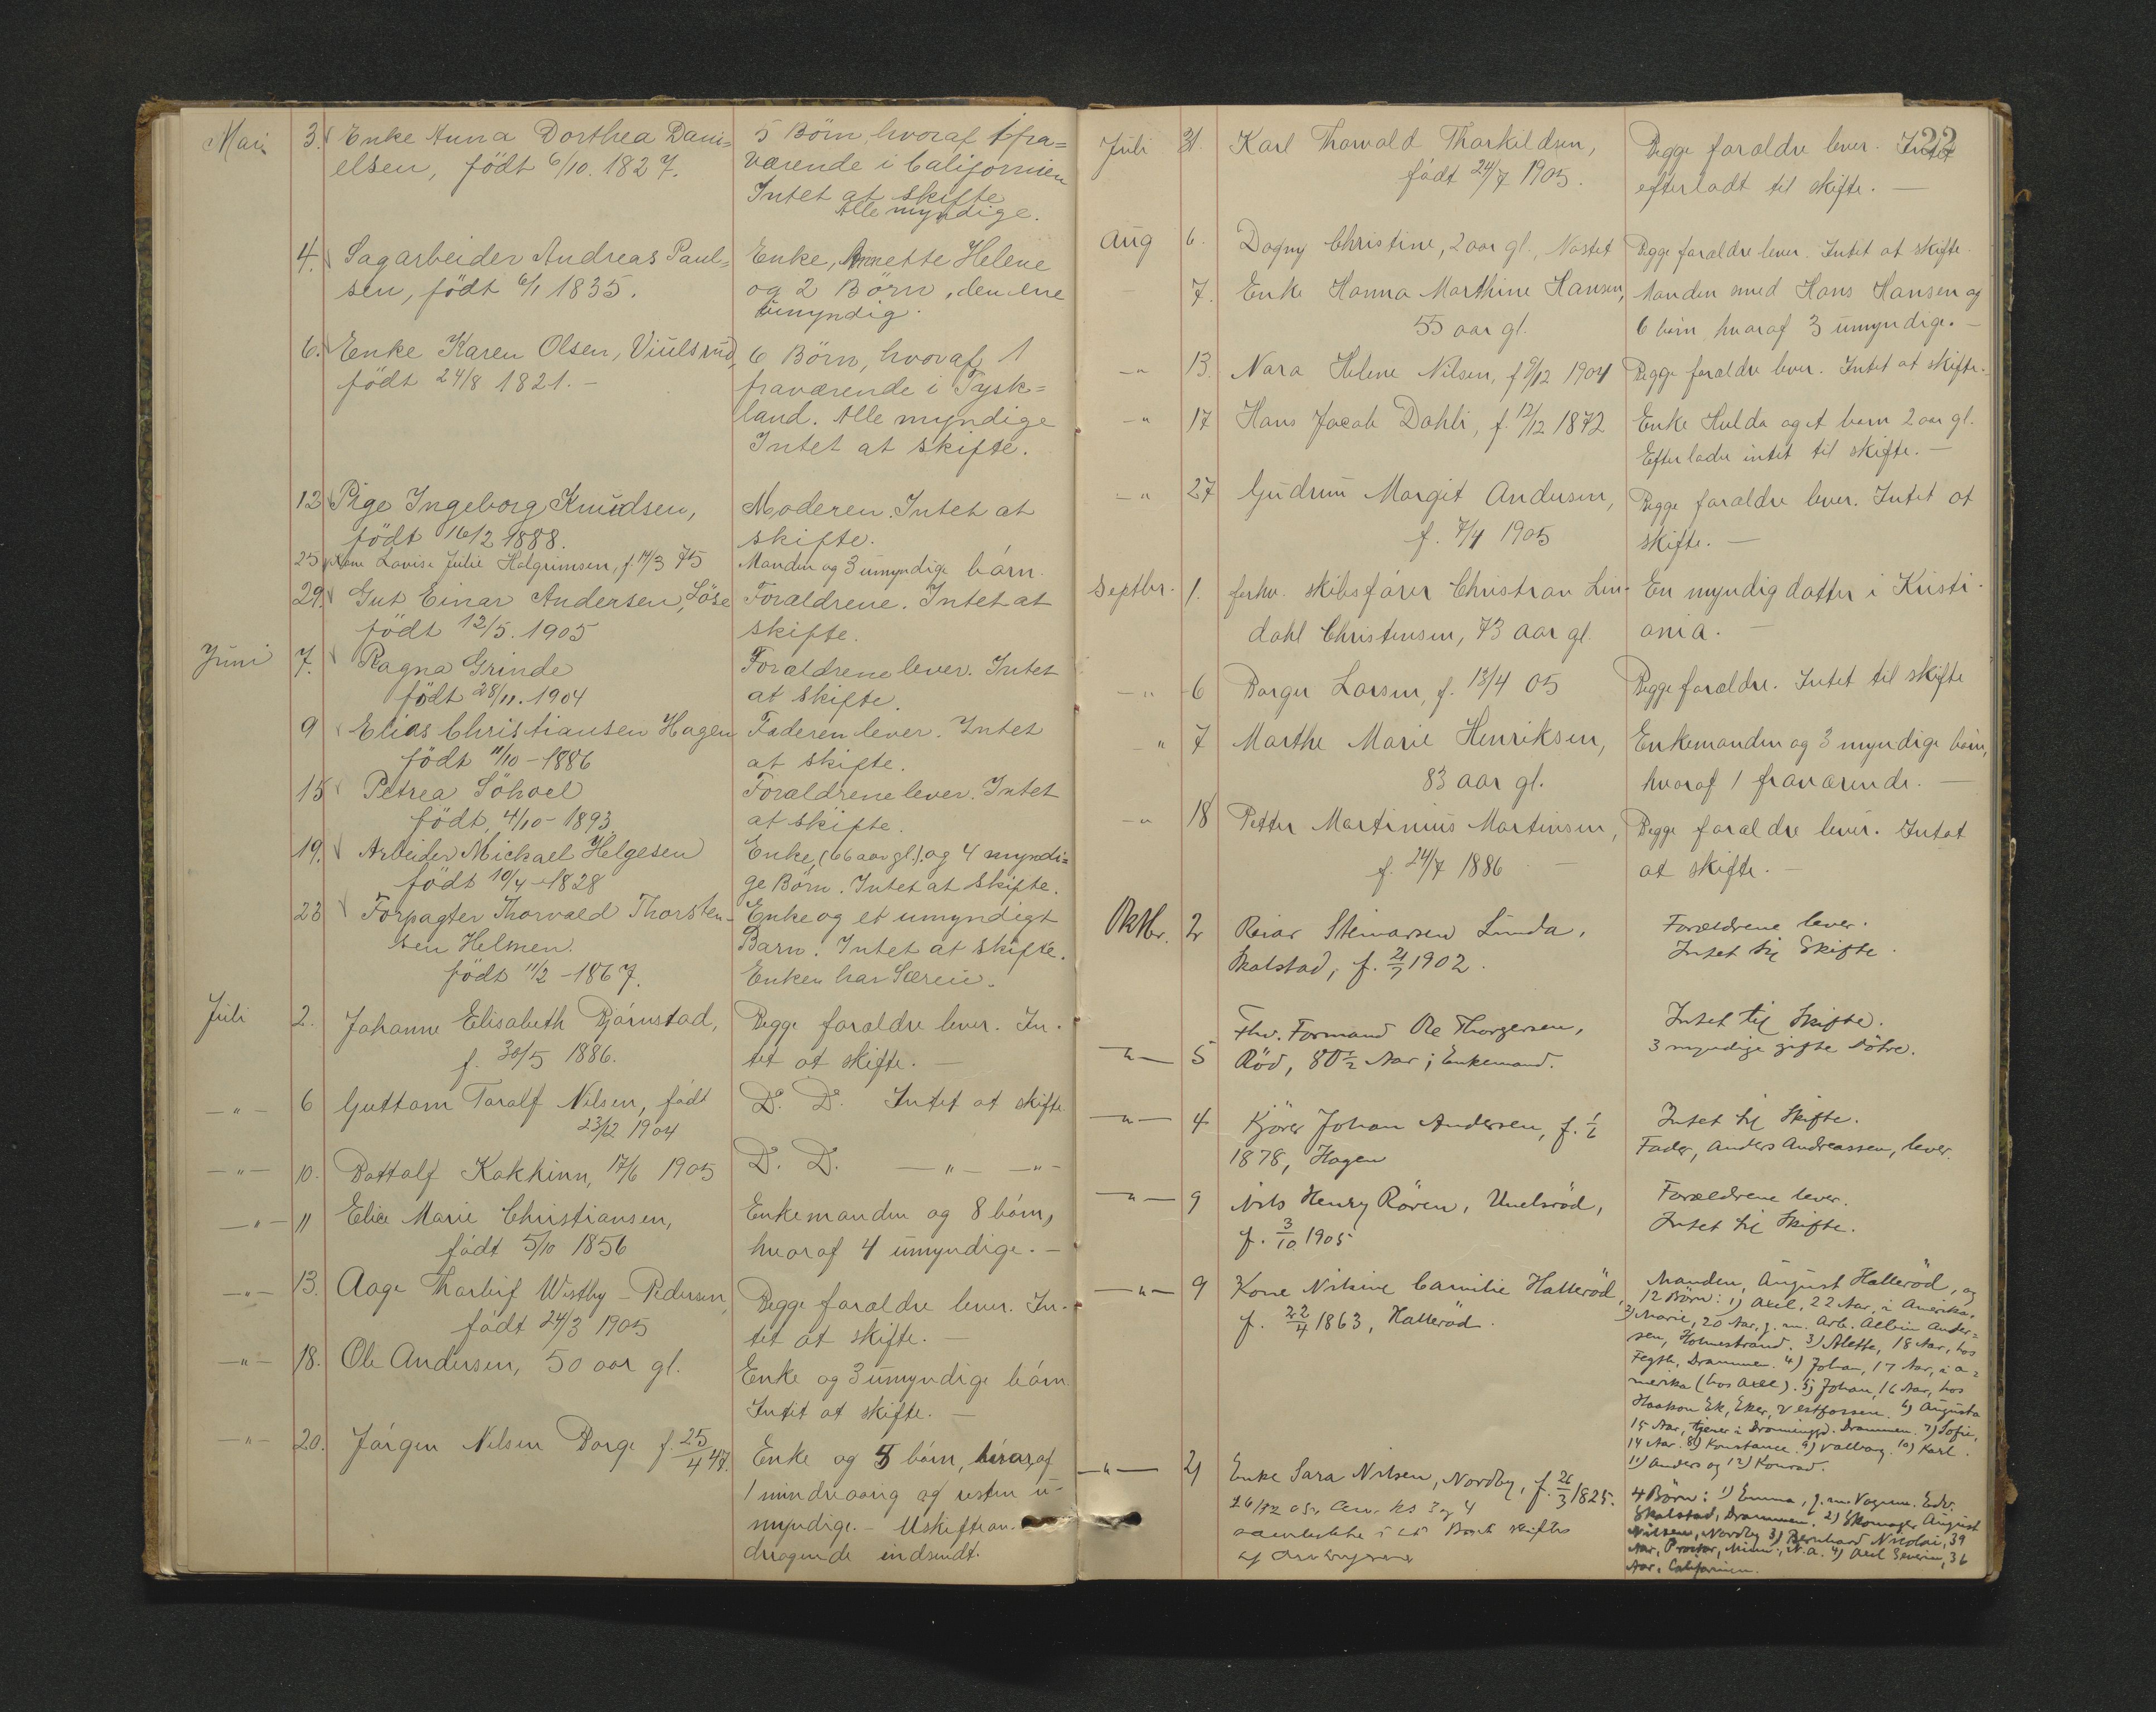 Mai 3. Enke Anna Dorthea Dani=
elsen, födt 6/10. 1827.
5 Börn, hvoraf 1 fra=
værende i Californien
Intet at skifte
Alle myndige.
4. Sagarbeider Andreas Paul=
sen, födt 6/1 1835.
Enke, Annette Helene
og 2 Börn, den ene
umyndig.
6. Enke Karen Olsen, Viulsrud,
födt 24/8 1821. -
6 Börn, hvoraf 1
fraværende i Tysk=
land. Alle myndige
Intet at skifte.
12 Pige Ingeborg Knudsen,
födt 16/2 1888.
Moderen. Intet at
skifte.
25 Kone Lovise Julie Halgrimsen, f. 14/3 75
Manden og 3 umyndige börn.
29. Gut Einar Andersen, Löse
födt 12/5. 1905
Forældrene. Intet at
skifte.
Juni 7. Ragna Grinde
födt 28/11. 1904
Forældrene lever. Intet
at skifte.
9 Elias Christiansen Hagen
födt 11/10 - 1886
Faderen lever. Intet
at skifte.
15 Petrea Söhoel
födt, 4/10 - 1893
Forældrene lever. Intet
at skifte.
19. Arbeider Michael Helgesen
födt 10/4 - 1828
Enke, (66 aar gl.) og 4 myndi=
ge Börn. Intet at skifte.
23 Forpagter Thorvald Thorsten-
sen Helmen.
födt 11/2 - 1867.
Enke og et umyndigt
Barn. Intet at skifte.
Enken har Særeie.
Juli 2. Johanne Elisabeth Bjørnstad,
f. 30/5 1886.
Begge forældre lever. In-
tet at skifte. -
- " - 6 Guttorm Toralf Nilsen, født
23/12 1904
D. D. Intet at skifte
- " - 10. Bottolf Kakkinn, 17/6 1905
D. D. - " - - " -
- " - 11 Elise Marie Christiansen,
født 5/10 1856
Enkemanden og 8 børn,
hvoraf 4 umyndige. -
- " - 13. Aage Thorleif Westby - Pedersen,
født 24/3 1905
Begge forældre lever. In-
tet at skifte. -
- " - 18. Ole Andersen, 50 aar gl.
Enke og 3 umyndige børn.
Intet at skifte. -
- " - 20. Jørgen Nilsen Borge f. 25/4 47.
Enke og 5 børn, hvoraf
1 mindreaarig og resten u-
myndige. - Uskifte an-
dragende indsendt.
22
Juli 31. Karl Thorvald Thorkildsen,
født 24/7 1905.
Begge forældre lever. Intet
efterladt til skifte. -
Aug 6. Dagny Christine, 2 aar gl., Nøstet
Begge forældre lever. Intet at skifte.
- 7. Enke Hanna Marthine Hansen,
55 aar gl.
Manden smed Hans Hansen og
6 børn hvoraf 3 umyndige. -
- " 13. Nora Helene Nilsen, f 9/12 1904
Begge forældre lever. Intet at skifte. -
- " 17 Hans Jacob Dahli, f. 12/12 1872
Enke Hulda og et barn 2 aar gl.
Efterlader intet til skifte. -
- " 27 Gudrun Margit Andersen,
f. 7/4 1905
Begge forældre lever. Intet at
skifte. -
Septbr. 1. forhv. skibsfører Christian Lin-
dahl Christensen, 73 aar gl.
En myndig datter i Kristi-
ania. -
- " - 6 Borger Larsen, f. 13/4 05
Begge forældre. Intet til skifte
- " 7 Marthe Marie Henriksen,
83 aar gl.
Enkemanden og 3 myndige børn,
hvoraf 1 fraværende. -
- " 18 Petter Martinius Martinsen,
f. 24/7 1886 -
Begge forældre lever. Intet
at skifte. -
Oktbr. 2 Reiar Steinarsen Lunda,
Skalstad, f. 21/7 1902.
Forældrene lever.
Intet til Skifte.
- " - 5 Fhv. Formand Ole Thorgersen,
Röd, 80 1/2 Aar; Enkemand.
Intet til Skifte.
3 myndige gifte Döhre.
- " - 4 Kjörer Johan Andersen, f. 1/6
1878, Hagen
Intet til Skifte.
Fader, Anders Andreassen, lever.
- " - 9 Nils Henry Rören, Unelsröd,
f. 3/10 1905
Forældrene lever.
Intet til Skifte.
- " - 9 Kone Nikine Camilie Halleröd,
f. 22/4 1863, Halleröd.
Manden, August Halleröd, og
12 Börn: 1) Axel, 22 Aar, i Amerika.
2) Marie, 20 Aar, g. m. Arb. Albin Ander=
sen, Holmestrand. 3) Alette, 18 Aar, hos
Fegth, Drammen. 4) Johan, 17 Aar, i A=
merika (hos Axel). 5) Johan, 16 Aar, hos
Haakon Ek, Eker, Vestfossen. 6) Augusta
15 Aar, tjener i Dronninggd. Drammen. 7) Sofie,
14 Aar. 8) Konstance. 9) Valborg. 10) Karl.
11) Anders og 12) Konrad.
- " - 21 Enke Sara Nilsen, Nordby, f. 26/3 1825.
3 og 4
skiftes
4 Börn: 1) Emma, g. m. Vognm. Edv.
Skalstad, Drammen. 2) Skomager August
Nilsen, Nordby 3) Bernhard Nikolai, 39
Aar, Proctor, Minn., N. A. 4) Axel Severin, 36
Aar, Californien.